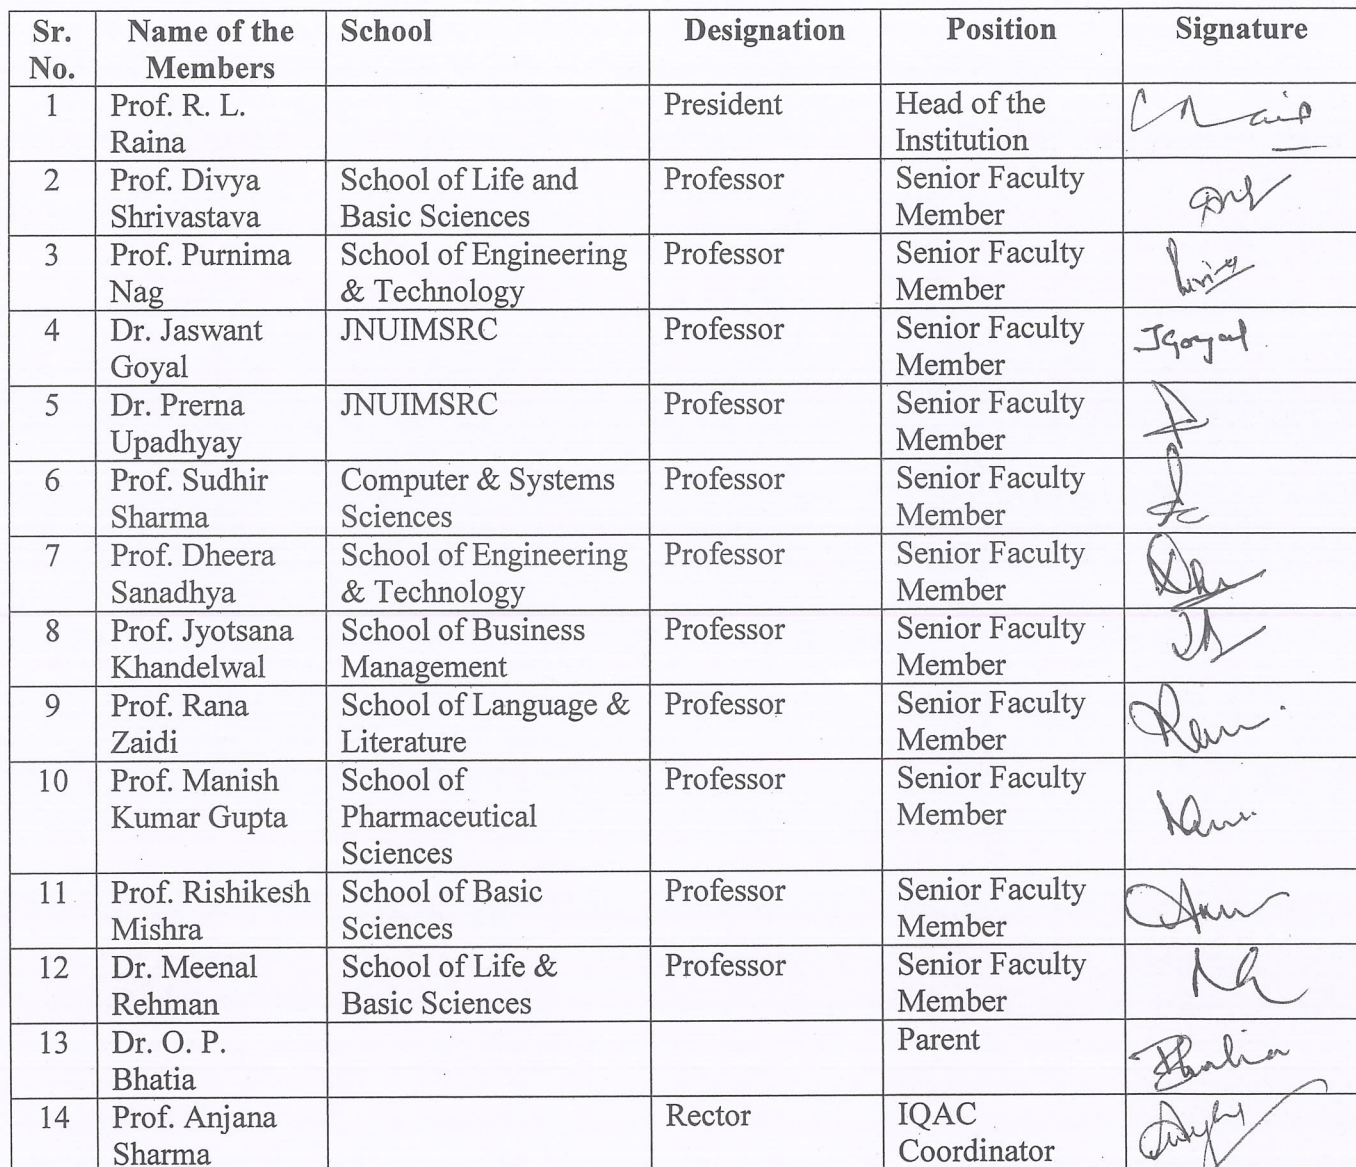 Sr. No. Name of the Members School Designation Position Signature
1 Prof. R. L. Raina President Head of the Institution
2 Prof. Divya Shrivastava School of Life and Basic Sciences Professor Senior Faculty Member
3 Prof. Purnima Nag School of Engineering & Technology Professor Senior Faculty Member
4 Dr. Jaswant Goyal JNUIMSRC Professor Senior Faculty Member JGoyal
5 Dr. Prerna Upadhyay JNUIMSRC Professor Senior Faculty Member
6 Prof. Sudhir Sharma Computer & Systems Sciences Professor Senior Faculty Member
7 Prof. Dheera Sanadhya School of Engineering & Technology Professor Senior Faculty Member
8 Prof. Jyotsana Khandelwal School of Business Management Professor Senior Faculty Member
9 Prof. Rana Zaidi School of Language & Literature Professor Senior Faculty Member
10 Prof. Manish Kumar Gupta School of Pharmaceutical Sciences Professor Senior Faculty Member
11 Prof. Rishikesh Mishra School of Basic Sciences Professor Senior Faculty Member
12 Dr. Meenal Rehman School of Life & Basic Sciences Professor Senior Faculty Member
13 Dr. O. P. Bhatia Parent Bhatia
14 Prof. Anjana Sharma Rector IQAC Coordinator